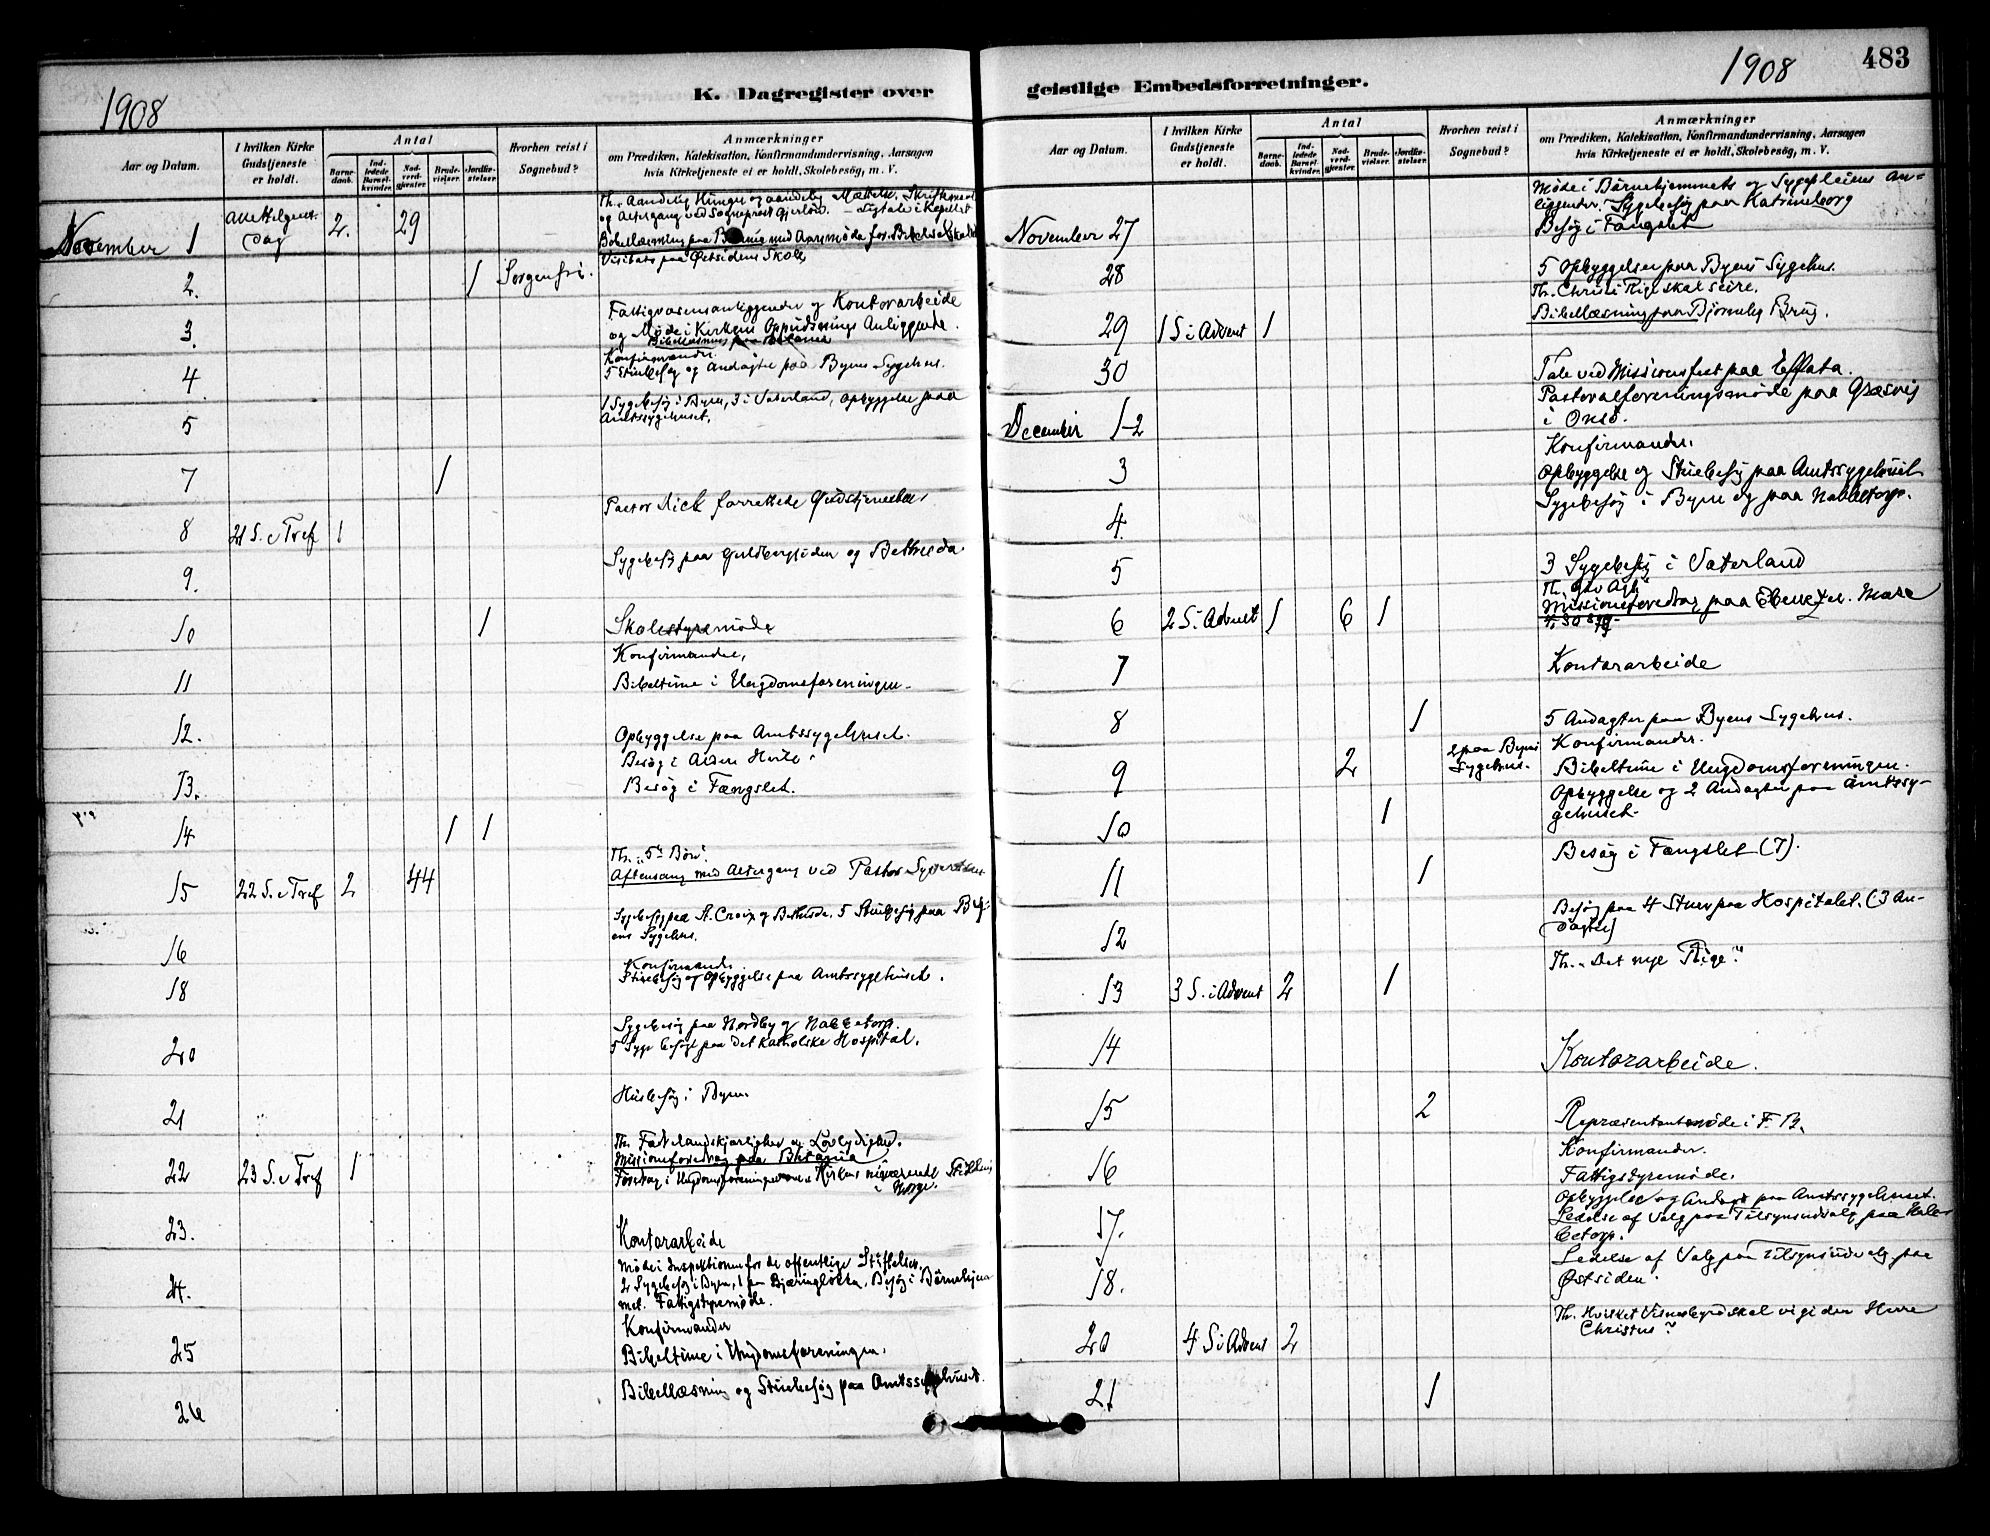 1908
K. Dagregister over
Aar og Datum.
I hvilken Kirke Gudstjeneste er holdt.
Antal
Barnedaab.
Indledede Barselkvinder.
Nadverdgjester
Brudevielser.
Jordfæstelser.
Hvorhen reist i Sognebud?
Anmærkninger
om Prædiken, Katekisation, Konfirmandundervisning, Aarsagen
hvis Kirketjeneste ei er holdt, Skolebesög, m. V.
November 1 Allehelgens Dag 2. 29
Th. Aandelig Hunger og aandelig Mættelse.
og Altergang ved Sogneprest Gjerløw. – Ligtale i Kapellet
Visitats paa Østsidens Skole
2. 1 Sorgenfri.
Fattigvæsensanliggender og Kontorarbeide
3. og Møde i Kirkens Anliggende.
Bibellæsning paa Betania
Konfirmander.
4. 5 Stuebesøg og Andagter paa Byens Sygehus.
1 Sygebesøg i Byen, 3 i Vaterland, Opbyggelse paa
5 Amtssygehuset.
7 1
Pastor Dick forrettede Gudstjenesten
8 21 S. e Tref 1
Sygebesøg paa og Bethesda
9.
10 1 Skolestyremøde
Konfirmander,
11 Bibeltime i Ungdomsforeningen.
12. Opbyggelse paa Amtssygehuset.
Besøg i Alders Hvile.
13. Besøg i Fængslet.
14 1 1
Th.
15 22 S. e Tref 2 44 Aftensang med Altergang ved Pastor
Sygebesøg paa St. Croix og Bethesda. 5 Stuebesøg paa By-
16 ens Sygehus.
Konfirmander
18 Stuebesøg og Opbyggelse paa Amtssygehuset.
Sygebesøg paa Nordby og Nabbetorp.
20 5 Syge besøgt paa det katholske Hospital.
Husbesøg i Byen.
21
Th. Fædrelandskjærlighed og Lovlydighed.
Missionsforedrag paa Betania
22 23 S. e Tref 1 Foredrag i Ungdomsforeningen om Kirkens nuværende Stilling
i Norge.
23. Kontorarbeide
Møde i Inspektionen for de offentlige Stiftelser.
2 Sygebesøg i Byen, 1 paa Bjæringløkka. Besøg i Børnehjem-
24. met. Fattigstyremøde.
Konfirmander
25 Bibeltime i Ungdomsforeningen.
26 Bibellæsning og Stuebesøg paa Amtssygehuset.
1908
483
geistlige Embedsforretninger.
Aar og Datum.
I hvilken Kirke Gudstjeneste er holdt.
Antal
Barnedaab.
Indledede Barselkvinder.
Nadverdgjester.
Brudevielser.
Jordfæstelser.
Hvorhen reist i Sognebud?
Anmærkninger
om Prædiken, Katekisation, Konfirmandundervisning, Aarsagen
hvis Kirketjeneste ei er holdt, Skolebesög, m. V.
Møde i Børnehjemmets og Sygepleiens An-
liggender. Sygebesøg paa Katrineborg
November 27 Besøg i Fængslet
28 5 Opbyggelser paa Byens Sygehus.
Th. Christi Rige skal seire.
29 1 S i Advent 1 Bibellæsning paa Bjørneby Brug.
30 Tale ved Missionsfest paa Effata.
Pastoralforeningsmøde paa Græsvig
December 1-2 i Onsø.
Konfirmander.
3 Opbyggelse og Stuebesøg paa Amtssygehuset
4. Sygebesøg i Byen og paa Nabbetorp.
5 3 Sygebesøg i Vaterland
Th.
6 2 S. i Advent 1 6 1 Missionsforedrag paa Ebenezer.
7 Kontorarbeide
8 1 5 Andagter paa Byens Sygehus.
Konfirmander.
9 2 2 paa Byens Sygehus. Bibeltime i Ungdomsforeningen.
Opbyggelse og 2 Andagter paa Amtssy-
10 1 gehuset.
Besøg i Fængslet (7).
11 1
Besøg paa 4 Stuer paa Hospitalet. (3 An-
12 dagter)
Th. „Det nye Rige“
13 3 S. i Advent 2 1
14 Kontorarbeide.
15 2 Repræsentantmøde i F. B.
Konfirmander.
16 Fattigstyremøde.
Opbyggelse og Andagt paa Amtssygehuset.
17. Ledelse af Valg paa Tilsynsudvalg paa Nab-
betorp.
Ledelse af Valg paa Tilsynsudvalg paa
18. Østsiden.
Th. Hvilket Vidnesbyrd skal vi gi den Herre
20 4 S i Advent 2 Christus?
21 1